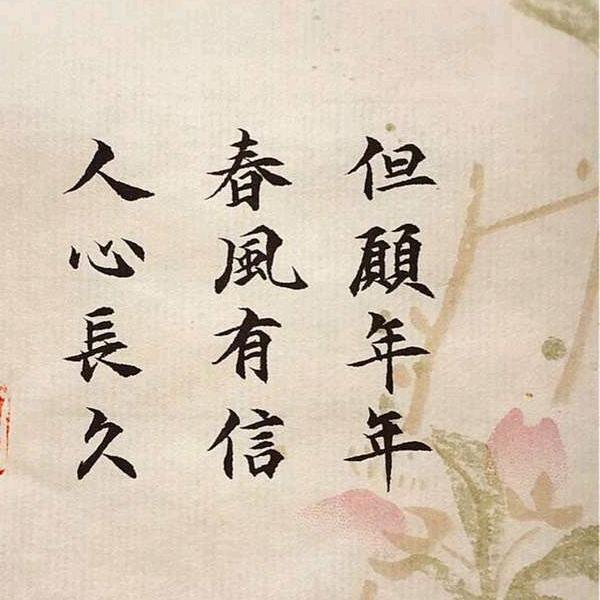 但願年年
春風有信
人心長久